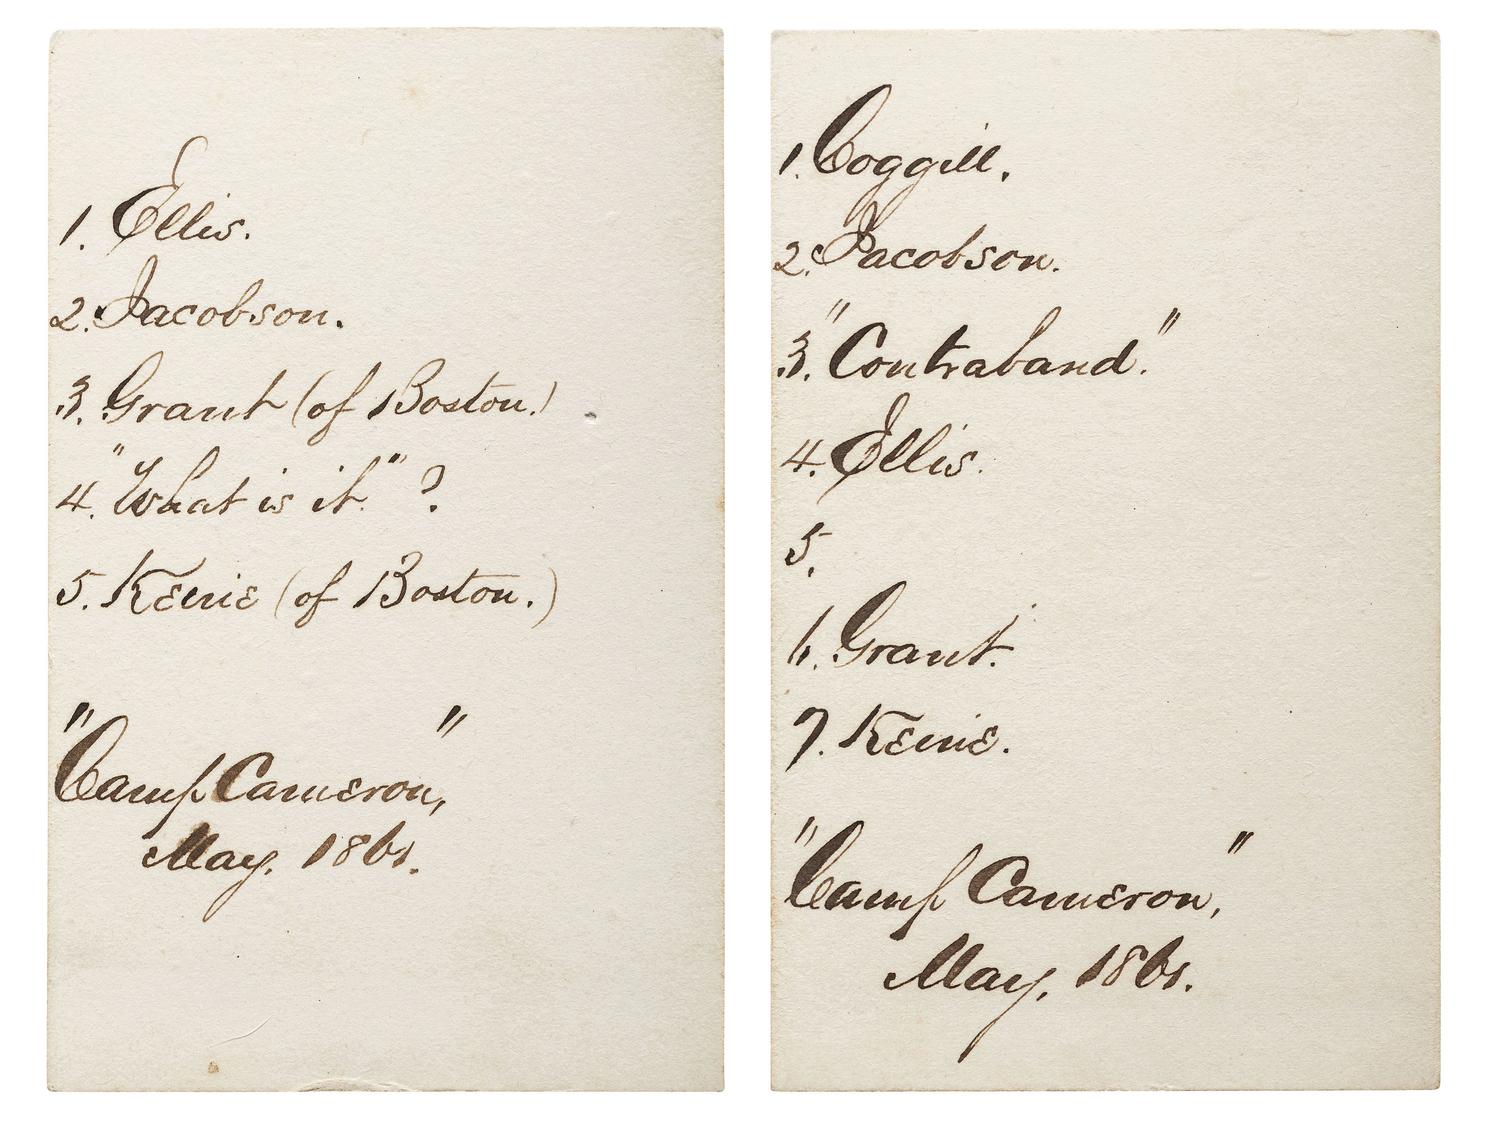 1. Ellis.
2. Jacobson.
3. Grant (of Boston.)
4. "What is it" ?
5. Keene (of Boston.)
"Camp Cameron,"
May. 1861.
1. Coggill.
2. Jacobson.
3. "Contraband".
4. Ellis.
5.
6. Grant.
7. Keene.
"Camp Cameron,"
May, 1861.